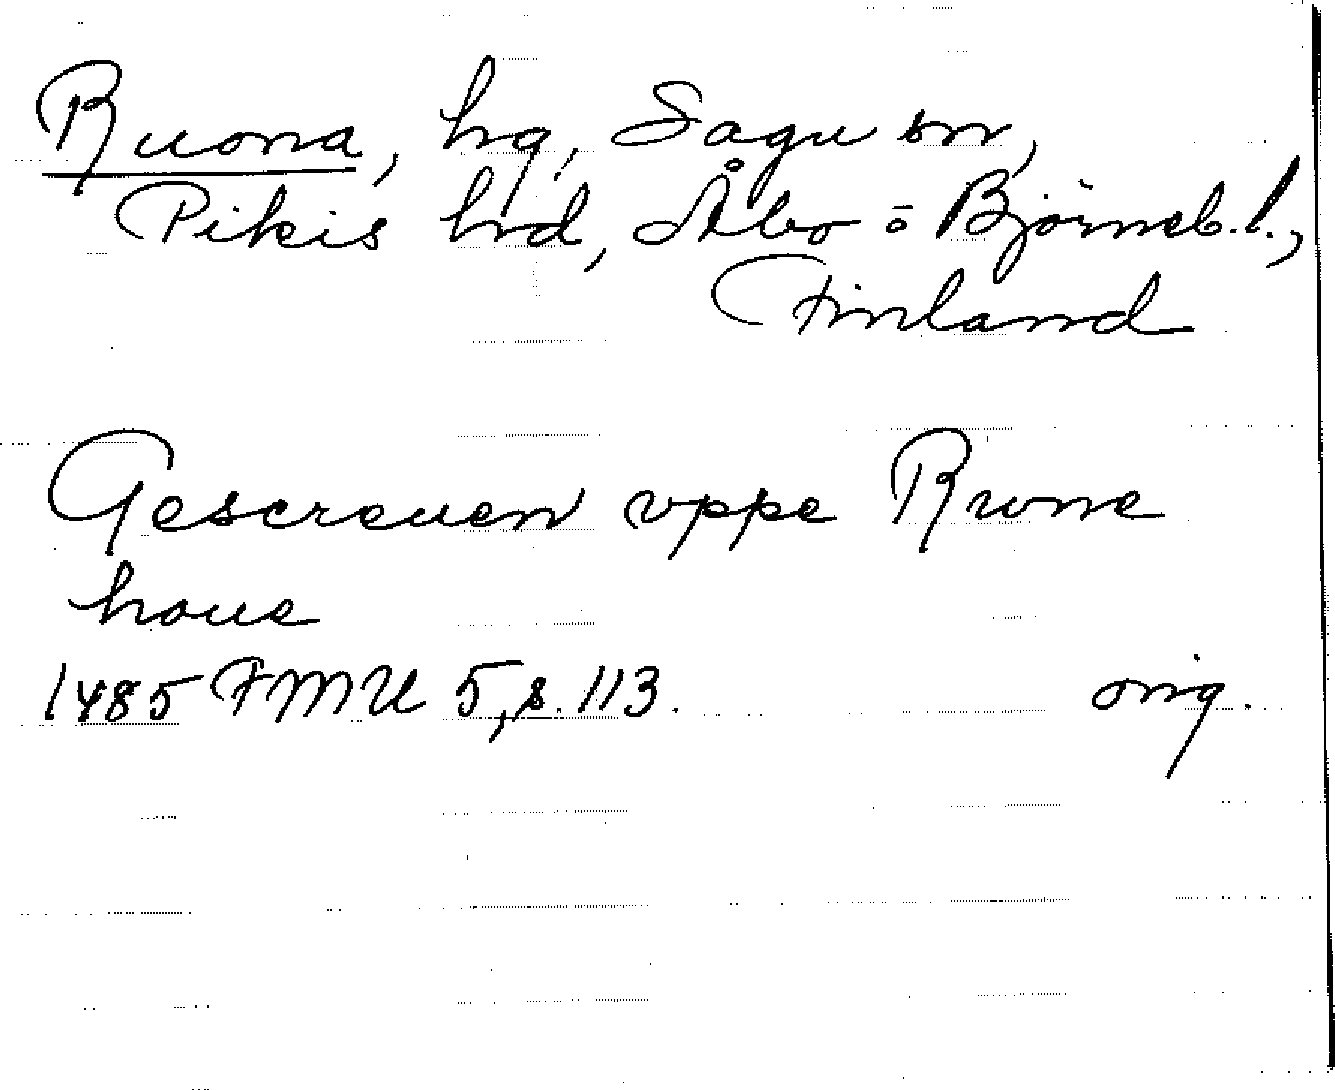 Ruona, hg, Sagu sn,
Pikis hrd, Åbo o Björneb. l.,
Finland
Gescreuen vppe Rwne
houe
1485 FMU 5, s. 113. orig.